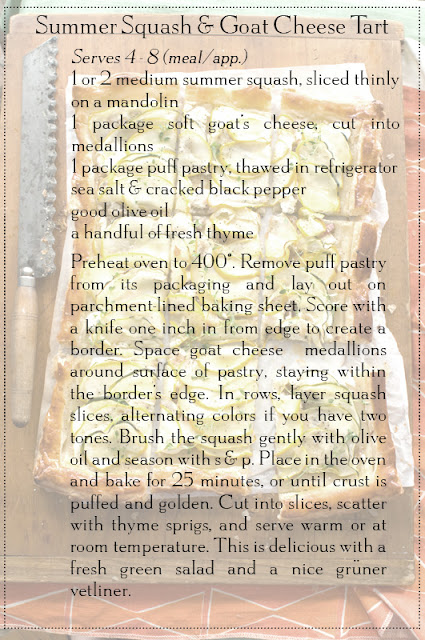 Summer Squash & Goat Cheese Tart
Serves 4 - 8 (meal/app.)
1 or 2 medium summer squash, sliced thinly
on a mandolin
1 package soft goat's cheese, cut into
medallions
1 package puff pastry, thawed in refrigerator
sea salt & cracked black pepper
good olive oil
a handful of fresh thyme
Preheat oven to 400°. Remove puff pastry
from its packaging and lay out on
parchment-lined baking sheet. Score with
a knife one inch in from edge to create a
border. Space goat cheese medallions
around surface of pastry, staying within
the border's edge. In rows, layer squash
slices, alternating colors if you have two
tones. Brush the squash gently with olive
oil and season with s & p. Place in the oven
and bake for 25 minutes, or until crust is
puffed and golden. Cut into slices, scatter
with thyme sprigs, and serve warm or at
room temperature. This is delicious with a
fresh green salad and a nice grüner
vetliner.